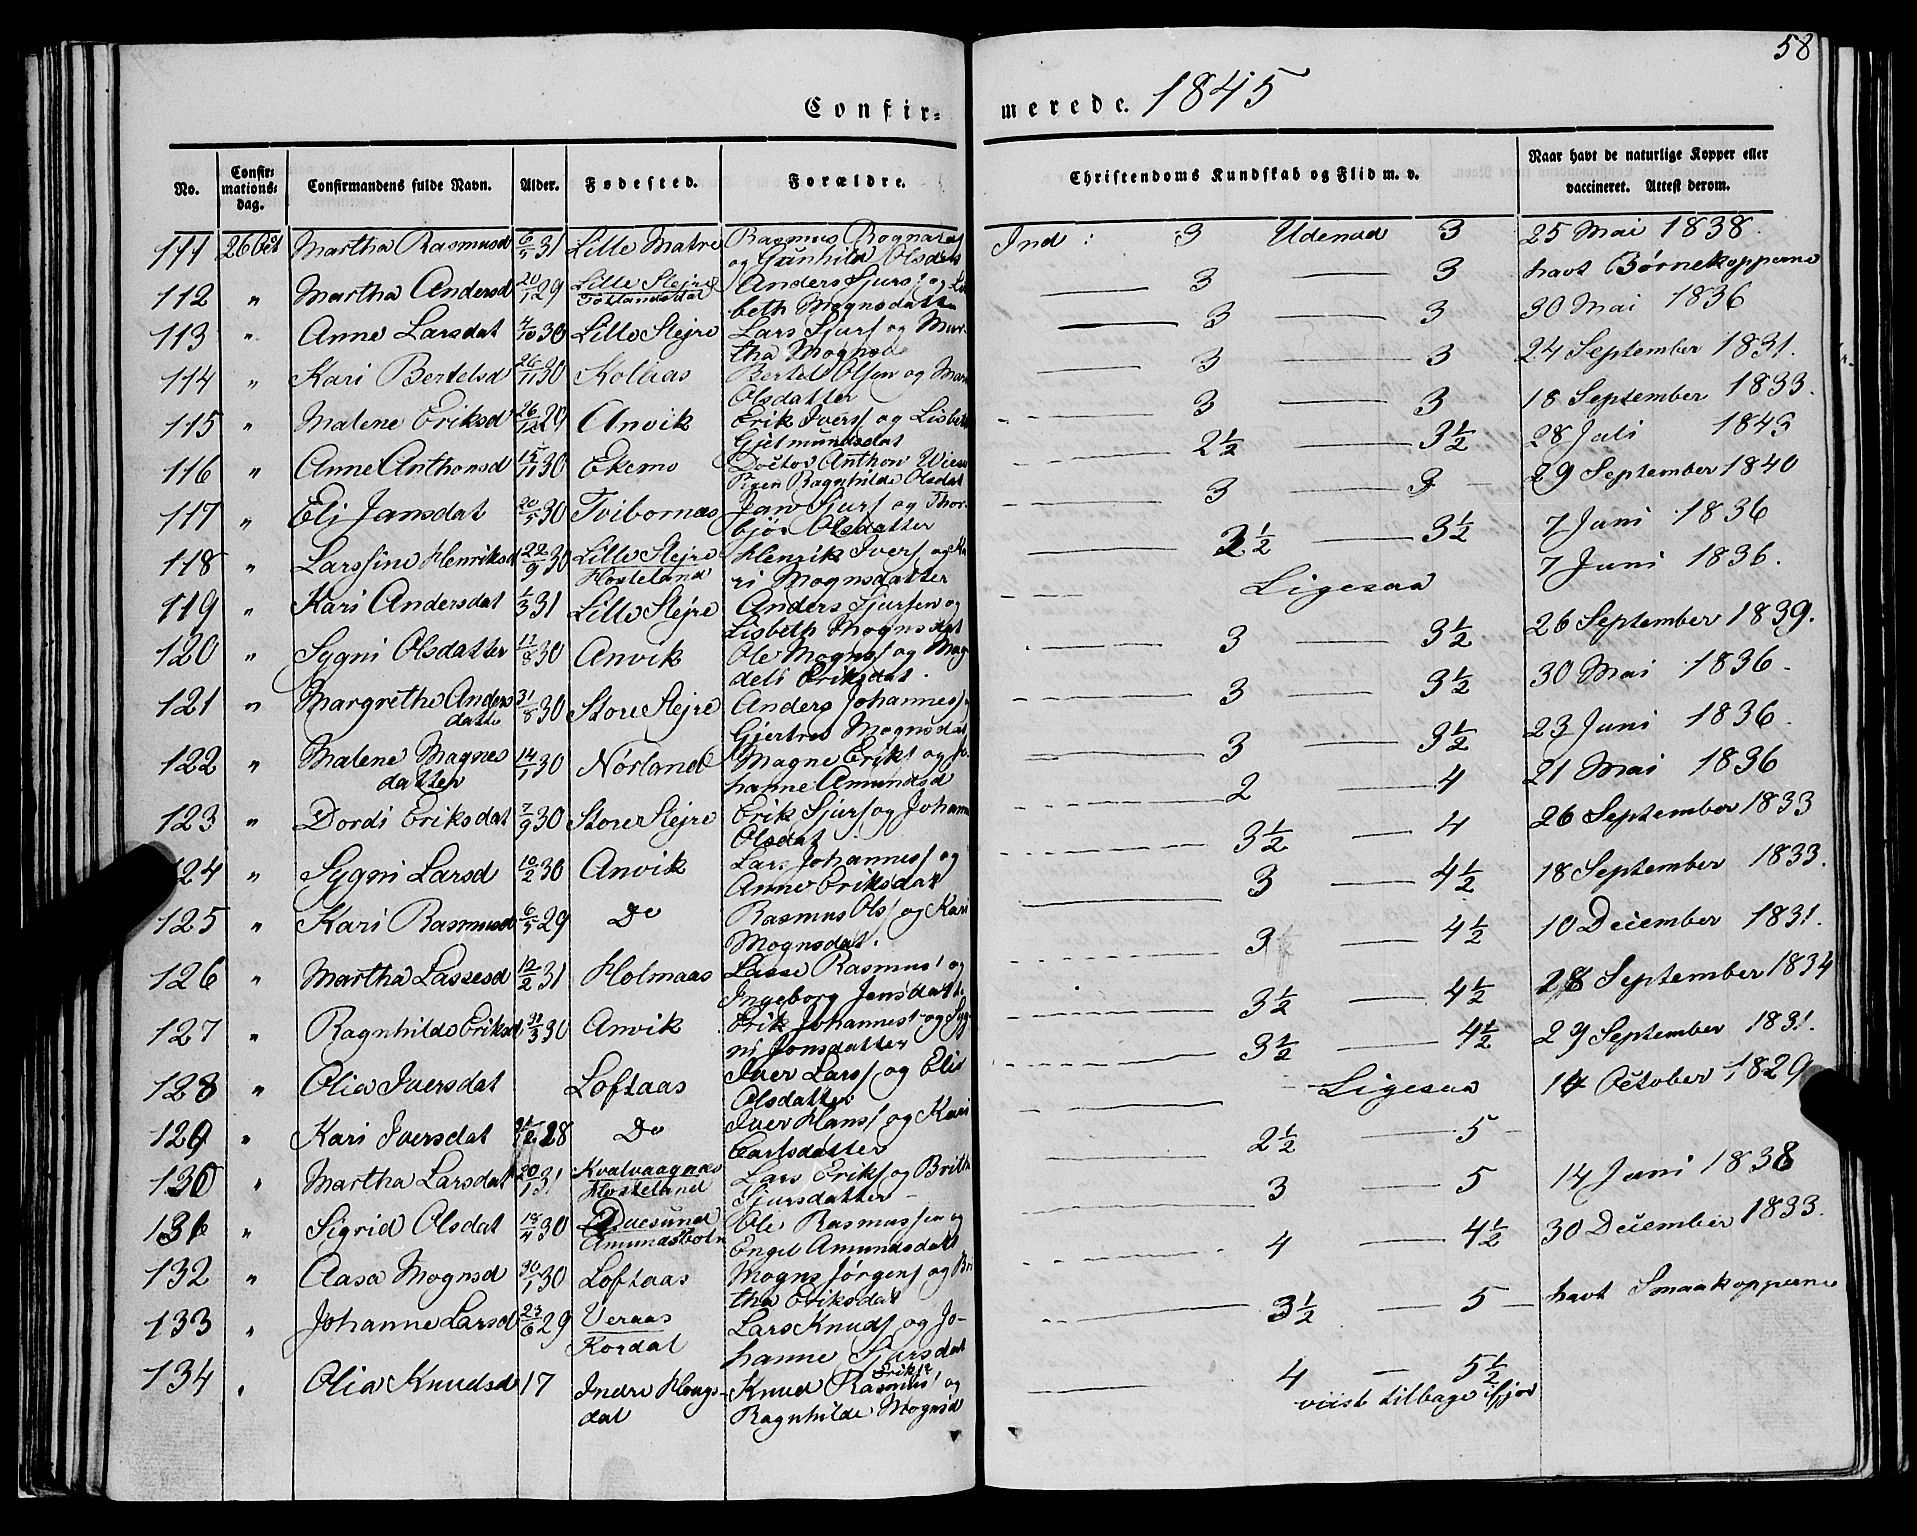 58
Confir-
merede. 1845
No.
Confir-
mations-
dag.
Confirmandens fulde Navn.
Alder.
Fødested.
Forældre.
Christendoms Kundskab og Flid m. v.
Naar havt de naturlige Kopper eller
vaccineret. Attest derom.
111 26 Oct Martha Rasmusd 6/5 31 Lille Matre Rasmus
og Gunhild Olsdat
Ind: 3 Udenad 3 25 Mai 1838.
112 " Martha Andersd 20/12 29 Lille Slejre Anders Sjurs og Lis
beth Mognsdatte
3 — 3 havt Børnekopperne
113 " Anne Larsdat 4/10 30 Lille Slejre Lars Sjurs og Mar-
tha Mognsd
3 — 3 30 Mai 1836
114 " Kari Bertelsd 26/11 30 Kolaas Bertel Olsen og
Olsdatter
3 — 3 24 September 1831.
115 " Malene Eriksd 26/12 29 Anvik Erik Ivers og Lisbeth
Gjetmundsdat
3 — 3 18 September 1833.
116 " Anne Anthonsd 15/11 30 Ekemo Doctor Anthon
Pigen Ragnhilde Olsdat
2½ — 3½ 28 Juli 1845
117 " Eli Jansdat 20/5 30 Tvibornæs Jan Sjurs og Thor-
bjør Olsdatter
3 — 3 29 September 1840
118 " Larssine Henriksd 22/9 30 Lille Slejre Henrik Ivers og Ka
Hosteland ri Mognsdatter
3½ — 3½ 7 Juni 1836
119 " Kari Andersdat 1/3 31 Lille Slejre Anders Sjursen og
Lisbeth Mognsdat
Ligesaa 7 Juni 1836.
120 " Sygni Olsdatter 11/8 30 Anvik Ole Mogns og Mag-
deli Eriksdat.
3 — 3½ 26 September 1839.
121 " Margrethe Anders 31/8 30 Store Slejre Anders Johannes
datte Gjertrud Mognsdat
3 — 3½ 30 Mai 1836.
122 " Malene Magnes 14/1 30 Nørland Magne Eriks og Jo
datter hanne Amundsd
3 — 3½ 23 Juni 1836.
123 " Dordi Eriksdat 7/9 30 Store Slejre Erik Sjurs og Johann
Olsdat
2 — 4 21 Mai 1836
124 " Sygni Larsd 10/2 30 Anvik Lars Johannes og
Anne Eriksdat
3½ — 4 26 September 1833
125 " Kari Rasmusd 6/5 29 Do Rasmus Ols og Kari
Mognsdat.
3 — 4½ 18 September 1833.
126 " Martha Lassesd 12/2 31 Holmaas Lasse Rasmus og
Ingeborg Jensdatt.
3 — 4½ 10 December 1831.
127 " Ragnhilde Eriksd 31/3 30 Anvik Erik Johannes og Syg-
ni Jonsdatter
3½ — 4½ 28 September 1834
128 " Olia Iversdat Loftaas Iver Lars og Elis
Olsdatter
3½ — 4½ 29 September 1831.
129 " Kari Iversdat 28 Do Iver Hans og Kari
Carlsdatter
Ligesaa 14 October 1829
130 " Martha Larsdat 20/1 31 Kvalvaagnæs Lars Eriks og Britha
Hosteland Sjursdatter
2½ — 5
131 " Sigrid Olsdat 18/4 30 Duesund Ole Rasmussen og
Amundsbotn Engel Amundsdatt
3 — 5 14 Juni 1838
132 " Aasa Mognsd 30/1 30 Loftaas Mogns Jørgens og Bri
tha Eriksdat
4 — 4½ 30 December 1833.
133 " Johanne Larsd 23/6 29 Veraas Lars Knuds og Jo-
Kordal hanne Sjursdat
3½ — 5 havt Smaakopperne
134 " Olia Knudsd 17 Indre Haugs- Knud Rasmus og
dal Ragnhilde Mognsd
4 — 5½
viist tilbage ifjor